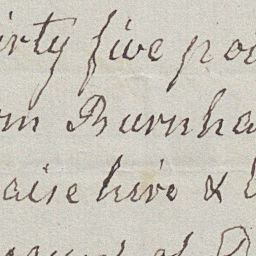 irty five po
m Burnha
aise hire &
of